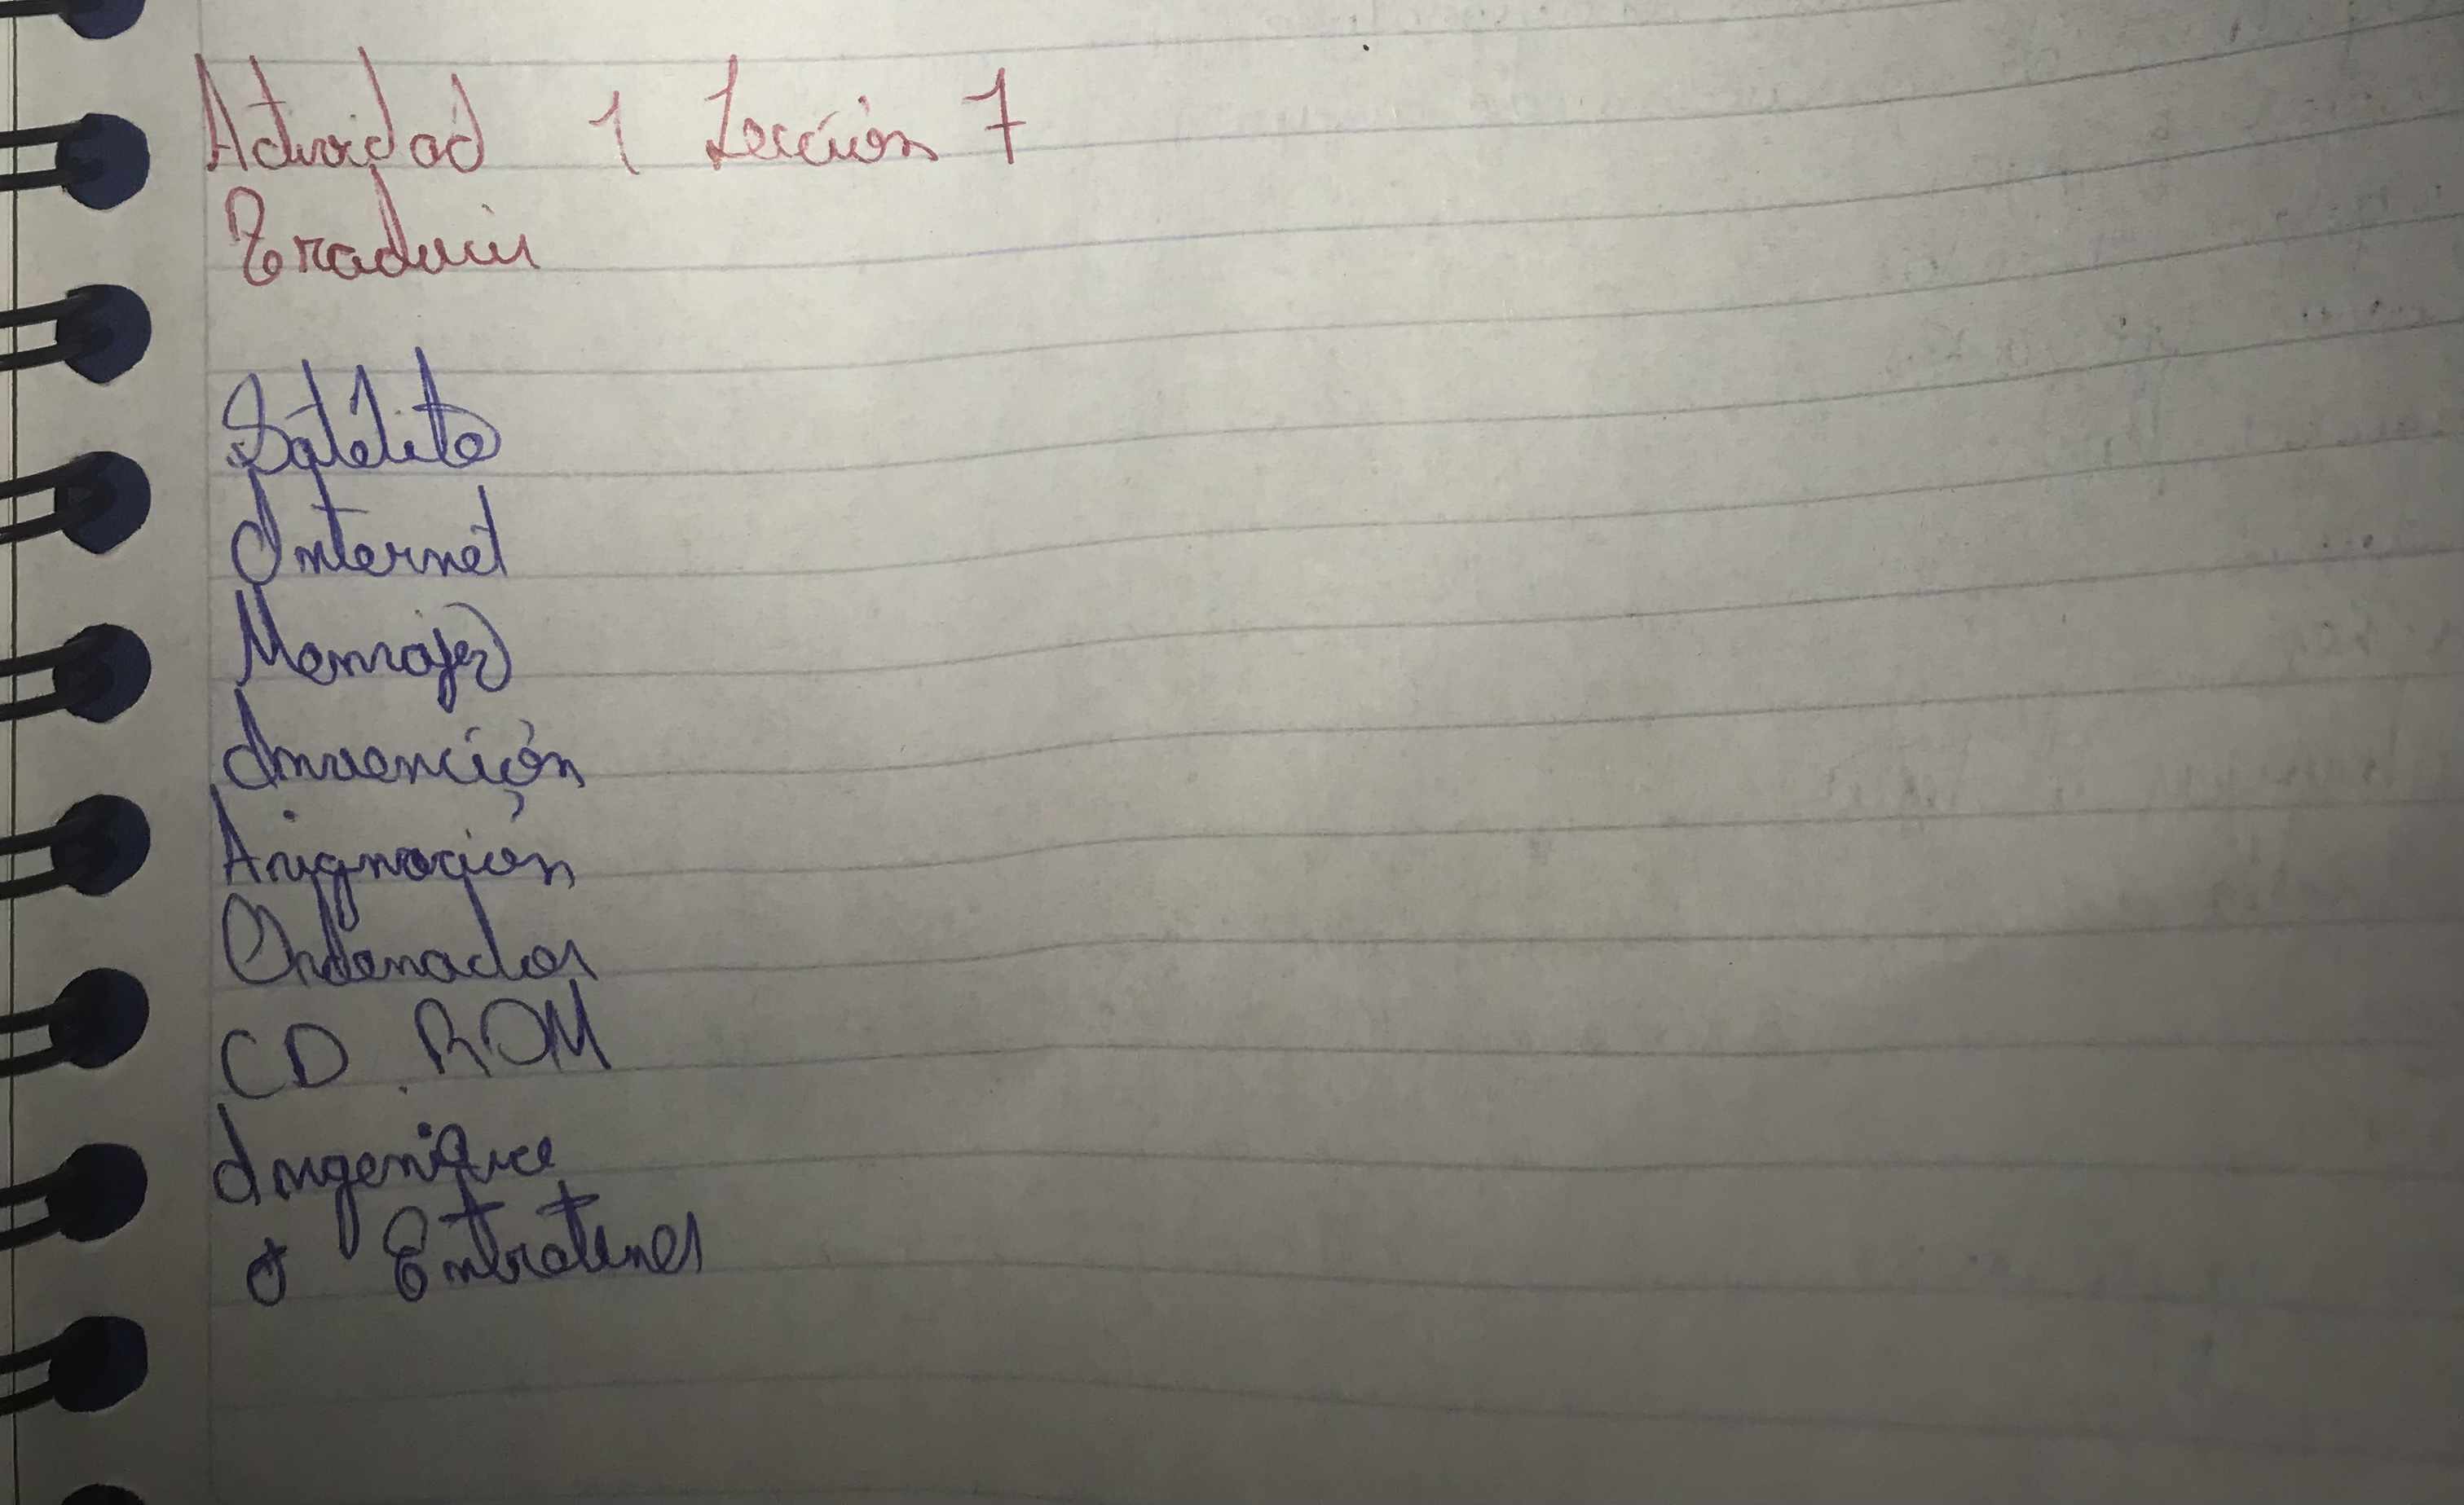 Actividad 1 Lección 7
Traducir
Satélite
Internet
Mensaje
Invención
Asignación
Ordenador
CD. ROM
Ingenieure
o Entratener